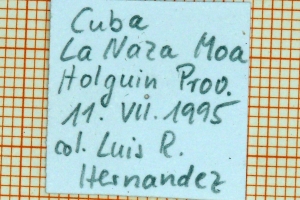 Cuba
La Naza Moa
Holguin Prov.
11. VII. 1995
col. Luis R.
Hernandez